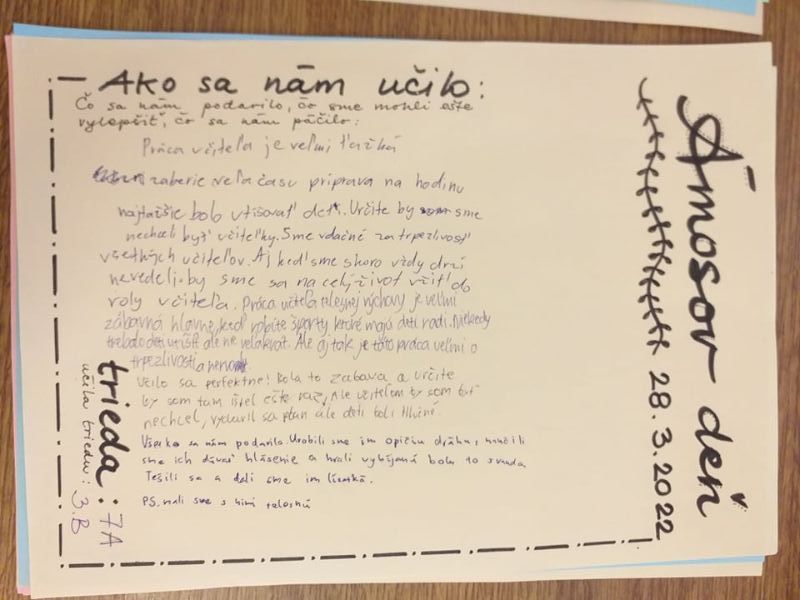 Ámosov deň
28.3.2022
Ako sa nám učilo:
Čo sa nám podarilo, čo sme mohli ešte
vylepšiť, čo sa nám páčilo:
Práca učiteľa je veľmi ťažká
zaberie veľa času príprava na hodinu
najťažšie bolo utišovať deti. Určite by sme
nechceli byť učiteľky. Sme vďačné za trpezlivosť
všetkých učiteľov. Aj keď sme skoro vždy drzí
nevedeli by sme sa na celý život vžiť do
roly učiteľa. Práca učiteľa telesnej výchovy je veľmi
zábavná hlavne, keď robíte športy, ktoré majú deti radi. Niekedy
trebalo deti utíšiť ale nie veľakrát. Ale aj tak je táto práca veľmi o
trpezlivosti a nervoch.
Učilo sa perfektne! Bola to zábava a určite
by som tam išiel ešte raz, Ale učiteľom by som byť
nechcel, vydaril sa plán ale deti boli hlučné
Všetko sa nám podarilo. Urobili sme im opičiu dráhu, naučili
sme ich dávať hlásenie a hrali vybíjanú bola to sranda
Tešili sa a dali sme im lízatká.
PS. mali sme s nimi telesnú
trieda: 7A
učila triedu: 3.B